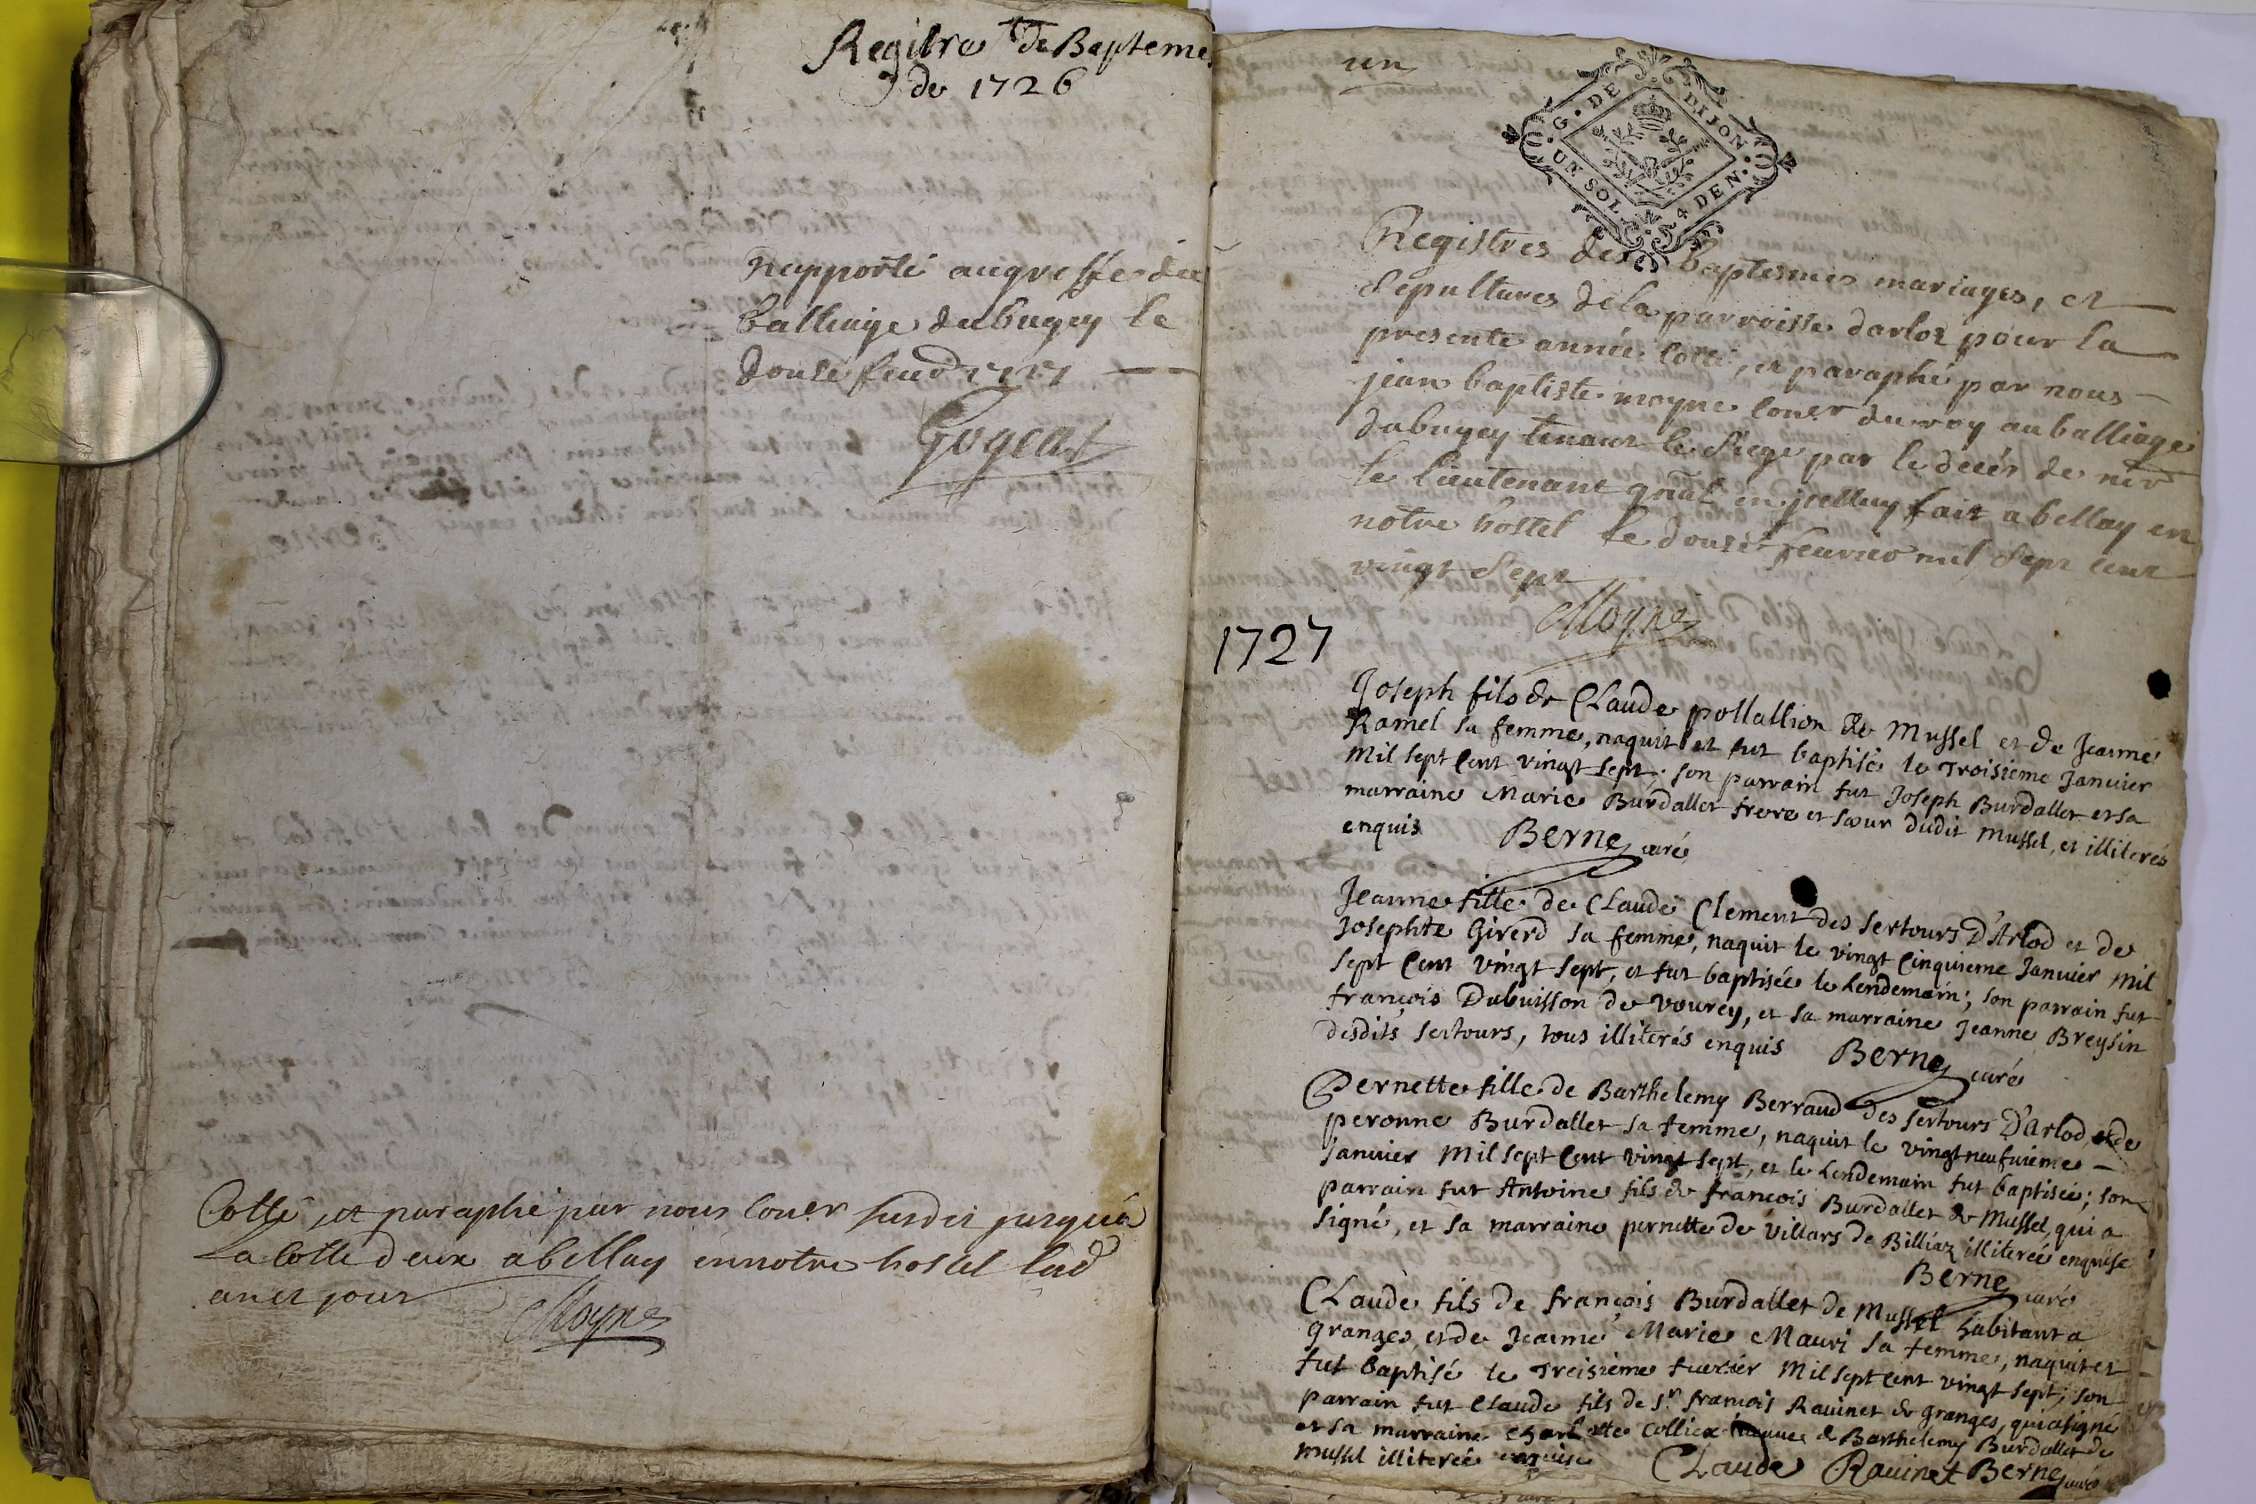 Registre de Bapteme
de 1726
Rapporté au greffe du
balliage du bugey le
douse feuer 1727
Cotté et paraphé par nous coner susdit jusqu'a
La Cotte deux a bellay en notre hostel lesd
an et jour
Moyne
un
G. DE DIJON
UN SOL 4 DEN.
Registres des baptesmes mariages, et
sepultures de la parroisse darloz pour la
presente année cotté, et paraphé par nous
jean baptiste moyne coner du roy au balliage
du bugey tenant le siege par le decés de mr
le lieutenant gnal en jcelluy fait a bellay en
notre hostel le douse feurier mil sept cent
vingt sept
Moyne
1727
Joseph fils de Claude pollallion de Mussel et de Jeanne
Ramel sa femme, naquit et fut baptisé le Troisieme Janvier
Mil sept Cent vingt sept; son parrain fut Joseph Burdallet et sa
marraine Marie Burdallet frere et sœur dudit Mussel, et illiterés
enquis Berne curé
Jeanne fille de Claude Clement des sertours D'Arlod et de
Josephte Girerd sa femme, naquit le vingt Cinquieme Janvier Mil
sept Cent vingt sept, et fut baptisée le Lendemain; son parrain fut
françois Dubuisson de vourey, et sa marraine Jeanne Breysin
desdits sertours, tous illiterés enquis Berne curé
Pernette fille de Barthelemy Berraud des sertours D'Arlod, et de
peronne Burdallet sa femme, naquit le vingt neufuieme
Janvier Mil sept Cent vingt sept, et le Lendemain fut baptisée; son
parrain fut Antoine fils de françois Burdallet de Mussel, qui a
signé, et sa marraine pernette de villars de Billiaz illiterée enquise
Berne curé
Claude fils de françois Burdallet de Mussel habitant a
granges, et de Jeanne Marie Mauri sa femme, naquit et
fut baptisé le Treisieme fuerier Mil sept cent vingt sept; son
parrain fut Claude fils de Sr. françois Rauinet de granges, qui a signé
et sa marraine Charlotte Colliex veuue de Barthelemy Burdallet de
Mussel illiterée enquise Claude Rauinet Berne curé